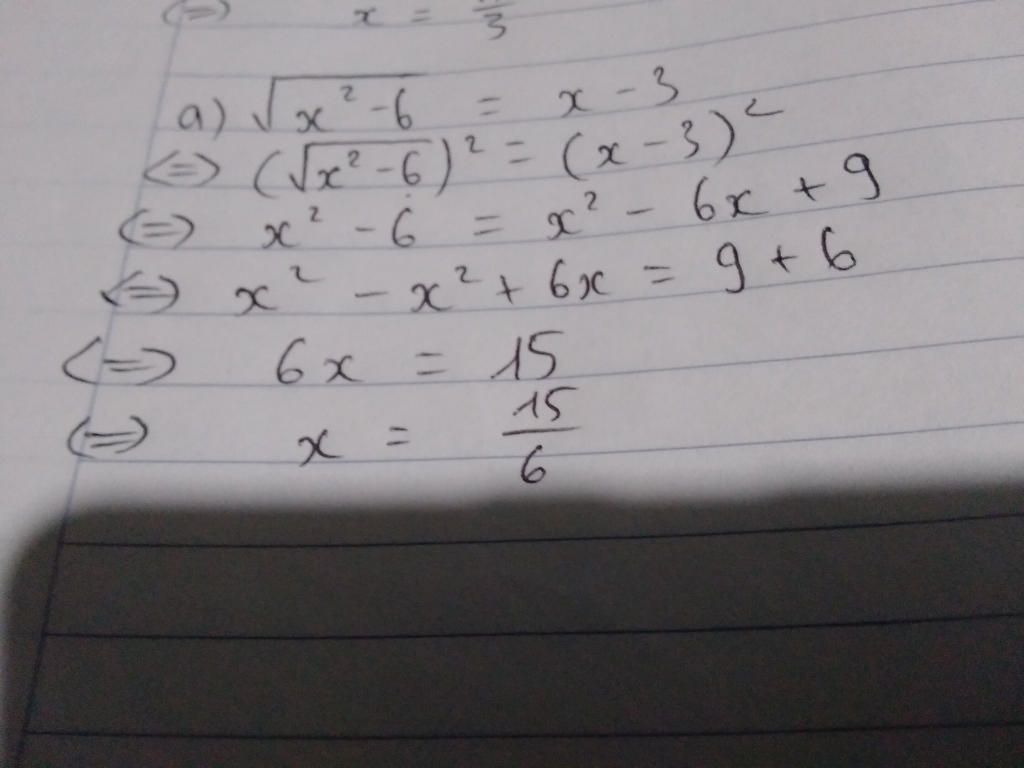 (=) x = /3
a) √(x² - 6) = x - 3
<=> (√(x² - 6))² = (x - 3)²
(=) x² - 6 = x² - 6x + 9
<=> x² - x² + 6x = 9 + 6
<=> 6x = 15
<=> x = 15/6